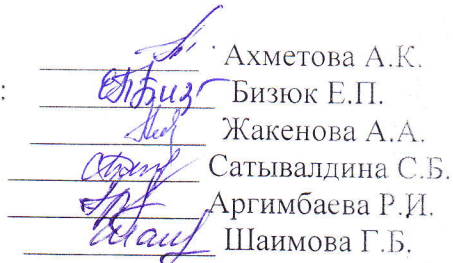 Ахметова А.К.
: Бизюк Е.П.
Жакенова А.А.
Сатывалдина С.Б.
Аргимбаева Р.И.
Шаимова Г.Б.